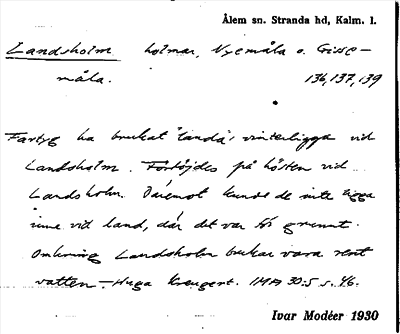 Ålem sn. Stranda hd, Kalm. l.
Landsholm holmar, Nyemåla o. Gisse-
måla. 136,137,139
Fartyg ha brukat landa i vinterligga vid
Landsholm. Förtöjdes på hösten vid
Landsholm. Däremot kunde de inte ligga
inne vid land, där det var för grunnt.
Omkring Landsholm brukar vara rent
vatten – Hugo Kreugert. IMA 30:5 s. 46.
Ivar Modéer 1930